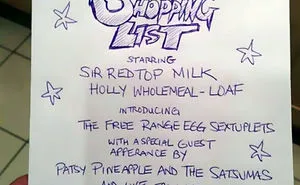 SHOPPING
LIST
STARRING
SIR REDTOP MILK
HOLLY WHOLEMEAL-LOAF
INTRODUCING
THE FREE RANGE EGG SEXTUPLETS
WITH A SPECIAL GUEST
APPERANCE BY
PATSY PINEAPPLE AND THE SATSUMAS